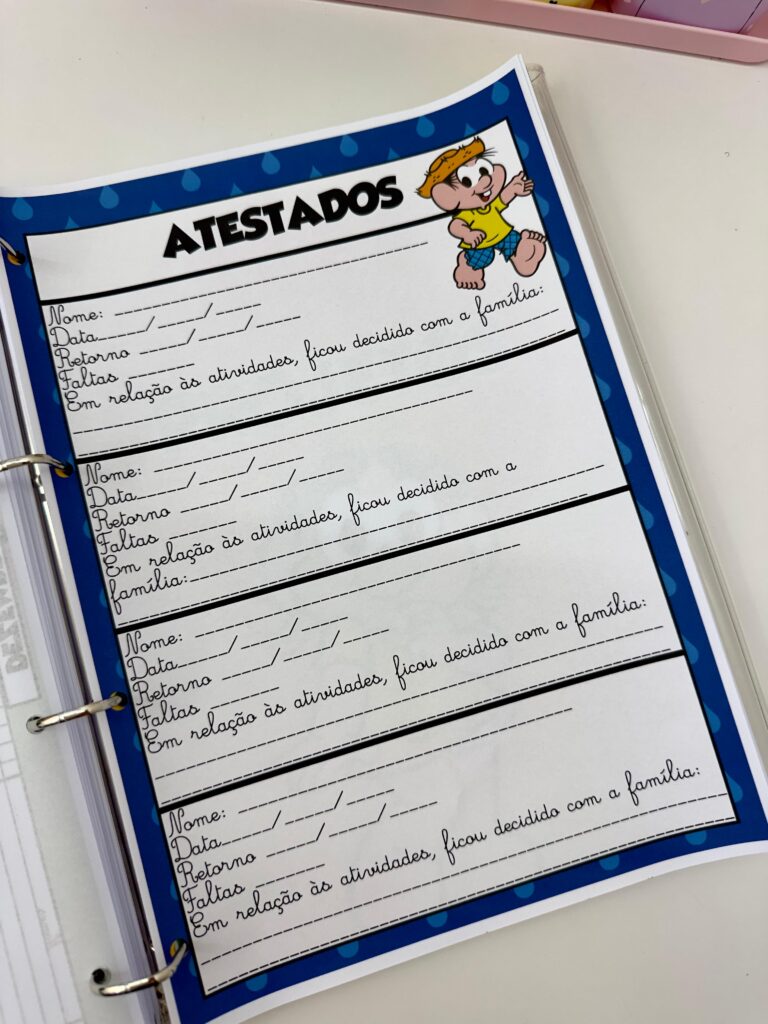 ATESTADOS
Nome: ____________________
Data____/____/____
Retorno ____/____/____
Faltas ______
Em relação às atividades, ficou decidido com a família:
Nome: ____________________
Data____/____/____
Retorno ____/____/____
Faltas ______
Em relação às atividades, ficou decidido com a
família:____________________
Nome: ____________________
Data____/____/____
Retorno ____/____/____
Faltas ______
Em relação às atividades, ficou decidido com a família:
Nome: ____________________
Data____/____/____
Retorno ____/____/____
Faltas ______
Em relação às atividades, ficou decidido com a família: